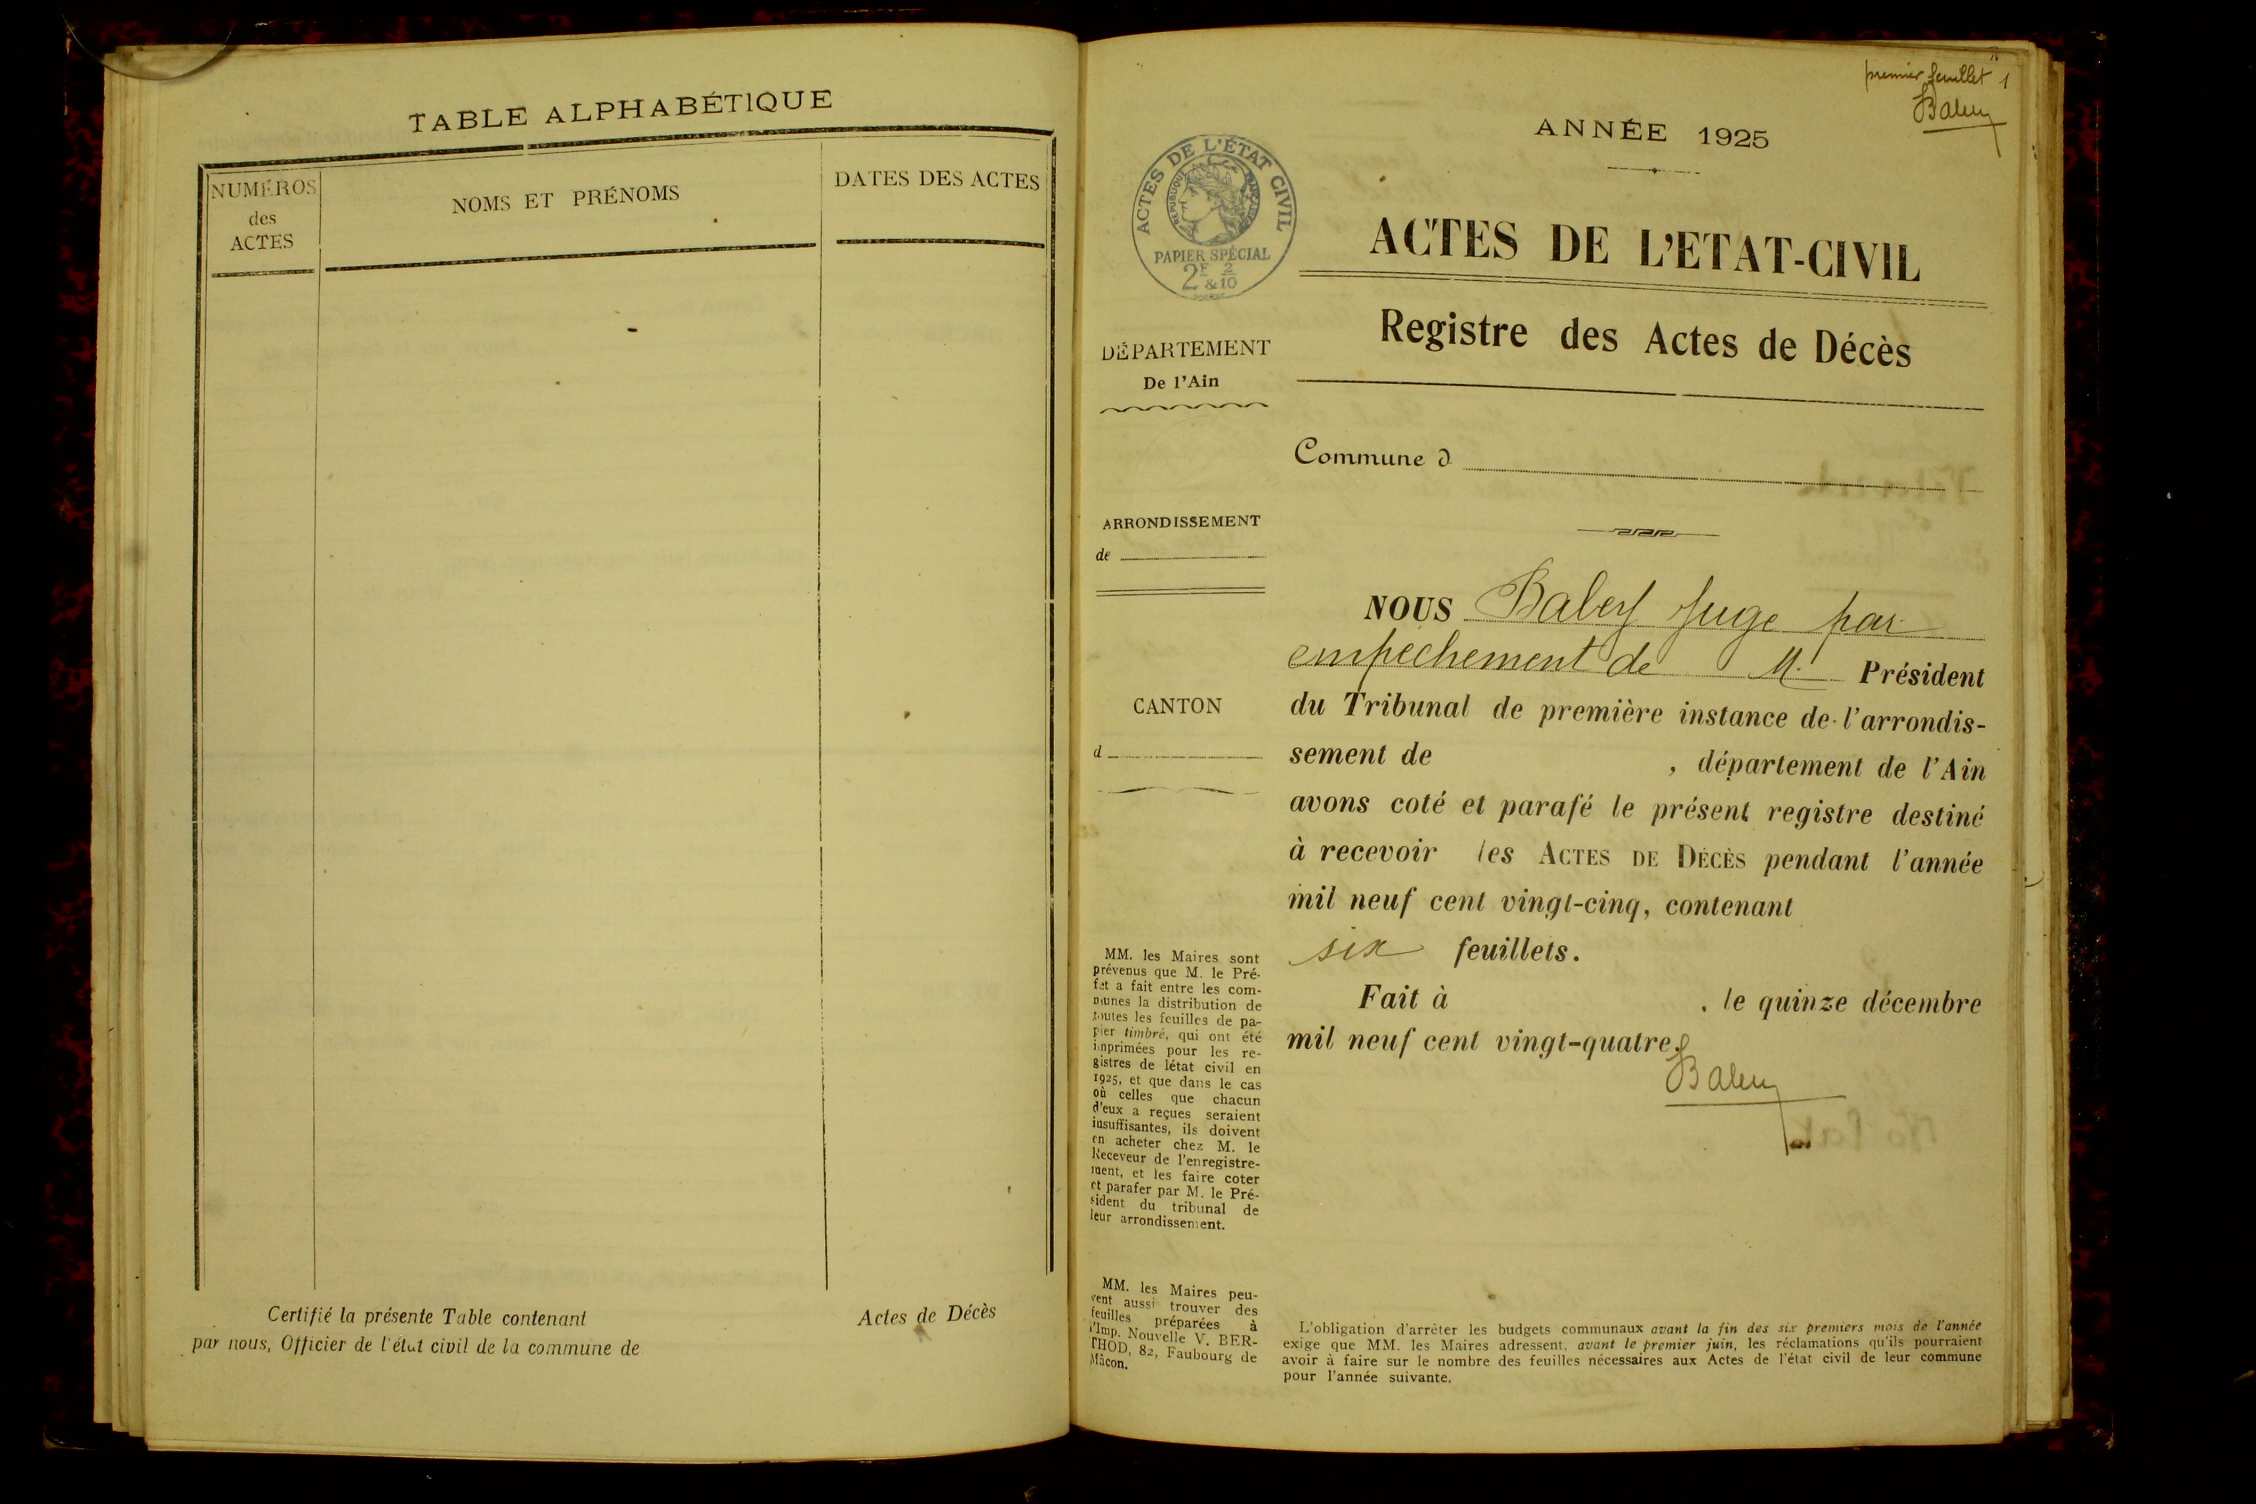 TABLE ALPHABÉTIQUE
NUMÉROS
des
ACTES
NOMS ET PRÉNOMS
DATES DES ACTES
Certifié la présente Table contenant
Actes de Décès
par nous, Officier de l'état civil de la commune de
premier feuillet 1
ANNÉE 1925
ACTES DE L'ÉTAT CIVIL
RÉPUBLIQUE FRANÇAISE
PAPIER SPÉCIAL
2F & 2/10
ACTES DE L'ETAT-CIVIL
Registre des Actes de Décès
DÉPARTEMENT
De l'Ain
Commune d
ARRONDISSEMENT
de
CANTON
d
NOUS Baley Juge par
empêchement de M. Président
du Tribunal de première instance de l'arrondis-
sement de , département de l'Ain
avons coté et parafé le présent registre destiné
à recevoir les ACTES DE DÉCÈS pendant l'année
mil neuf cent vingt-cinq, contenant
six feuillets.
Fait à , le quinze décembre
mil neuf cent vingt-quatre.
MM. les Maires sont
prévenus que M. le Pré-
fet a fait entre les com-
munes la distribution de
toutes les feuilles de pa-
pier timbré, qui ont été
imprimées pour les re-
gistres de létat civil en
1925, et que dans le cas
où celles que chacun
d'eux a reçues seraient
insuffisantes, ils doivent
en acheter chez M. le
Receveur de l'enregistre-
ment, et les faire coter
et parafer par M. le Pré-
sident du tribunal de
leur arrondissement.
MM. les Maires peu-
vent aussi trouver des
feuilles préparées à
l'Imp. Nouvelle V. BER-
THOD, 82, Faubourg de
Mâcon.
L'obligation d'arrêter les budgets communaux avant la fin des six premiers mois de l'année
exige que MM. les Maires adressent, avant le premier juin, les réclamations qu'ils pourraient
avoir à faire sur le nombre des feuilles nécessaires aux Actes de l'état civil de leur commune
pour l'année suivante.